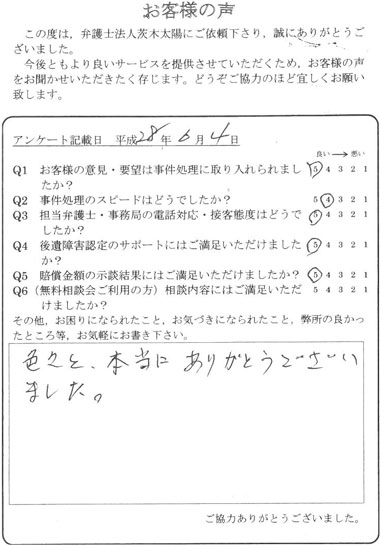 お客様の声
この度は、弁護士法人茨木太陽にご依頼下さり，誠にありがとうご
ざいました。
今後ともより良いサービスを提供させていただくため，お客様の声
をお聞かせいただきたく存じます。どうぞご協力のほど宜しくお願い
致します。
アンケート記載日 平成28年6月4日
良い→悪い
Q1 お客様の意見・要望は事件処理に取り入れられまし 5 4 3 2 1
たか？
Q2 事件処理のスピードはどうでしたか？ 5 4 3 2 1
Q3 担当弁護士・事務局の電話対応・接客態度はどうで 5 4 3 2 1
したか？
Q4 後遺障害認定のサポートにはご満足いただけました 5 4 3 2 1
か？
Q5 賠償金額の示談結果にはご満足いただけましたか？ 5 4 3 2 1
Q6（無料相談会ご利用の方）相談内容にはご満足いただ 5 4 3 2 1
けましたか？
その他，お困りになられたこと，お気づきになられたこと，弊所の良かっ
たところ等，お気軽にお書き下さい。
色々と、本当にありがとうございい
ました。
ご協力ありがとうございました。